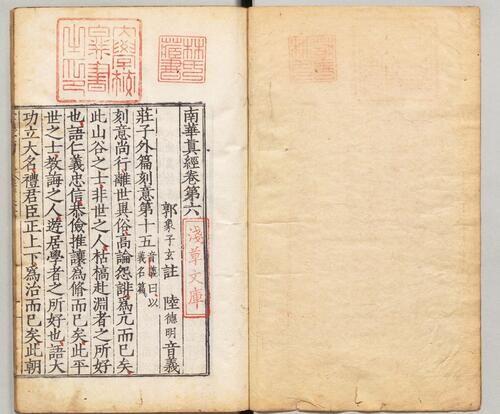 大學校圖書之印
林氏藏書
淺草文庫
南華真經卷第六
郭象子玄註 陸德明音義
莊子外篇刻意第十五 音義曰以義名篇
刻意尚行離世異俗高論怨誹爲亢而已矣
此山谷之士非世之人枯槁赴淵者之所好
也語仁義忠信恭儉推讓爲脩而已矣此平
世之士教誨之人遊居學者之所好也語大
功立大名禮君臣正上下爲治而已矣此朝